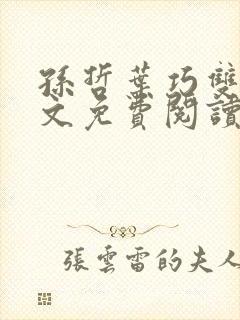 孫哲葉巧雙
文免費閱讀
張雲雷的夫人